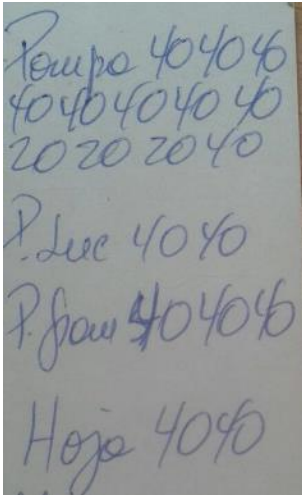 Pompa 40 40 40
40 40 40 40 40
20 20 20 40
P. Luc 40 40
P. Gram 40 40 40
Hoja 40 40